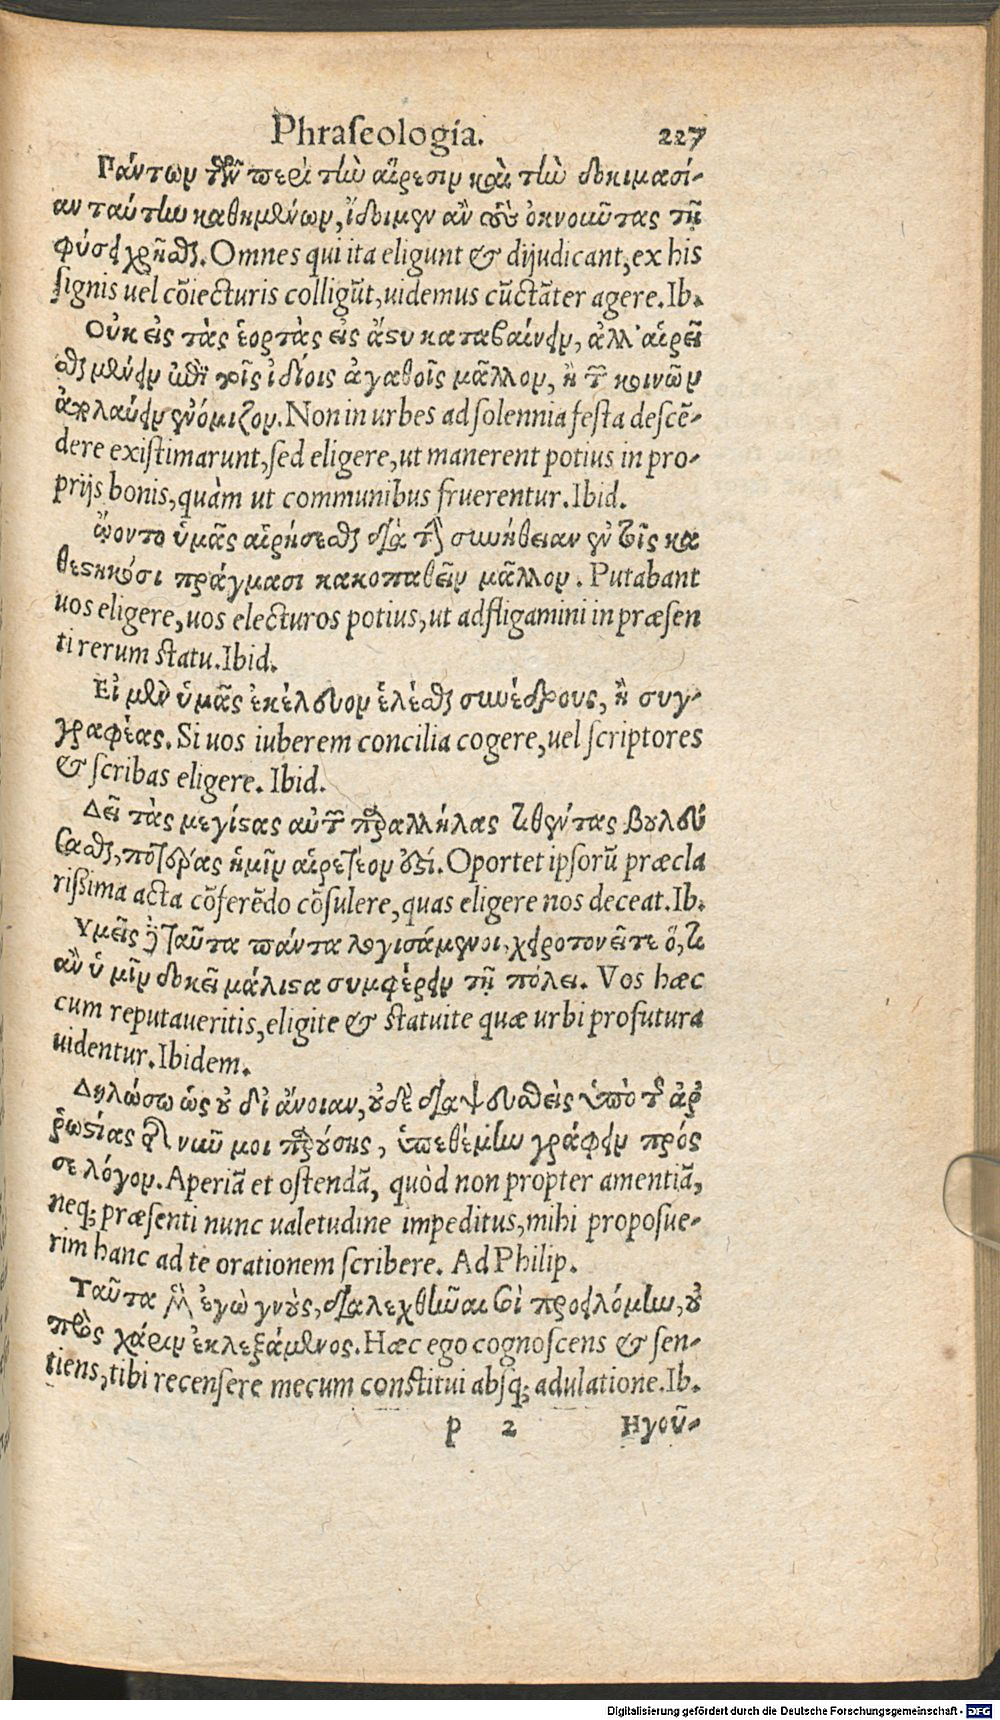 Phraseologia. 227
Πάντων τῶν περὶ τὴν αἵρεσιν καὶ τὴν δοκιμασί-
αν ταύτην καθημένων, ἴδοιμεν ἂν οὐκ ὀκνοῦντας τῇ
φύσει χρῆσθαι. Omnes qui ita eligunt & dijudicant, ex his
signis uel cõiecturis colligũt, uidemus cũctãter agere. Ib.
Οὐκ εἰς τὰς ἑορτὰς εἰς ἄστυ καταβαίνειν, ἀλλ' αἱρεῖ
σθαι μένειν ἐπὶ τοῖς ἰδίοις ἀγαθοῖς μᾶλλον, ἢ τῶν κοινῶν
ἀπολαύειν ἐνόμιζον. Non in urbes ad solennia festa descẽ-
dere existimarunt, sed eligere, ut manerent potius in pro-
prijs bonis, quàm ut communibus fruerentur. Ibid.
ᾤοντο ὑμᾶς αἱρήσεσθαι διὰ τὴν συνήθειαν ἐν τοῖς κα
θεστηκόσι πράγμασι κακοπαθεῖν μᾶλλον. Putabant
uos eligere, uos electuros potius, ut adfligamini in præsen
ti rerum statu. Ibid.
Εἰ μὲν ὑμᾶς ἐκέλευον ἑλέσθαι συνέδρους, ἢ συγ-
γραφέας. Si uos iuberem concilia cogere, uel scriptores
& scribas eligere. Ibid.
Δεῖ τὰς μεγίστας αὐτῶν παραλλήλας τιθέντας βουλεύ
σασθαι, ποτέρας ἡμῖν αἱρετέον ἐστί. Oportet ipsorũ præcla
rissima acta cõferẽdo cõsulere, quas eligere nos deceat. Ib.
Υμεῖς δὲ ταῦτα πάντα λογισάμενοι, χειροτονεῖτε ὅ, τι
ἂν ὑμῖν δοκεῖ μάλιστα συμφέρειν τῇ πόλει. Vos hæc
cum reputaueritis, eligite & statuite quæ urbi profutura
uidentur. Ibidem.
Δηλώσω ὡς οὐ δι' ἄνοιαν, οὐδὲ διαψευσθεὶς ὑπὸ τῆς ἀρ
ῥωστίας τῆς νῦν μοι παρούσης, ὑπεθέμην γράφειν πρός
σε λόγον. Aperiã et ostendã, quòd non propter amentiã,
neq; præsenti nunc ualetudine impeditus, mihi proposue-
rim hanc ad te orationem scribere. Ad Philip.
Ταῦτα δὲ ἐγὼ γνοὺς, διαλεχθῆναι σοὶ προειλόμην, οὐ
πρὸς χάριν ἐκλεξάμενος. Hæc ego cognoscens & sen-
tiens, tibi recensere mecum constitui absq; adulatione. Ib.
p 2 Ηγοῦ-
Digitalisierung gefördert durch die Deutsche Forschungsgemeinschaft - DFG